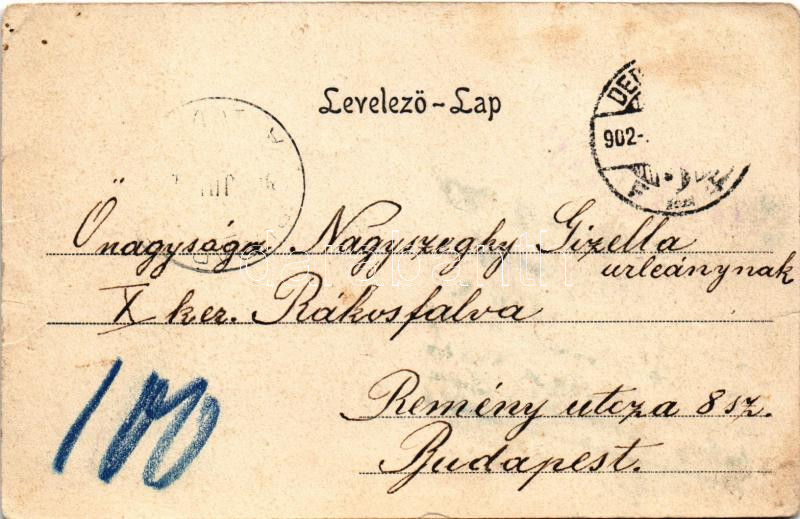 Levelező-Lap
DE
902-
Önagysága Nagyszeghy Gizella
urleánynak
X ker. Rakosfalva
100
Remény utcza 8 sz.
Budapest.